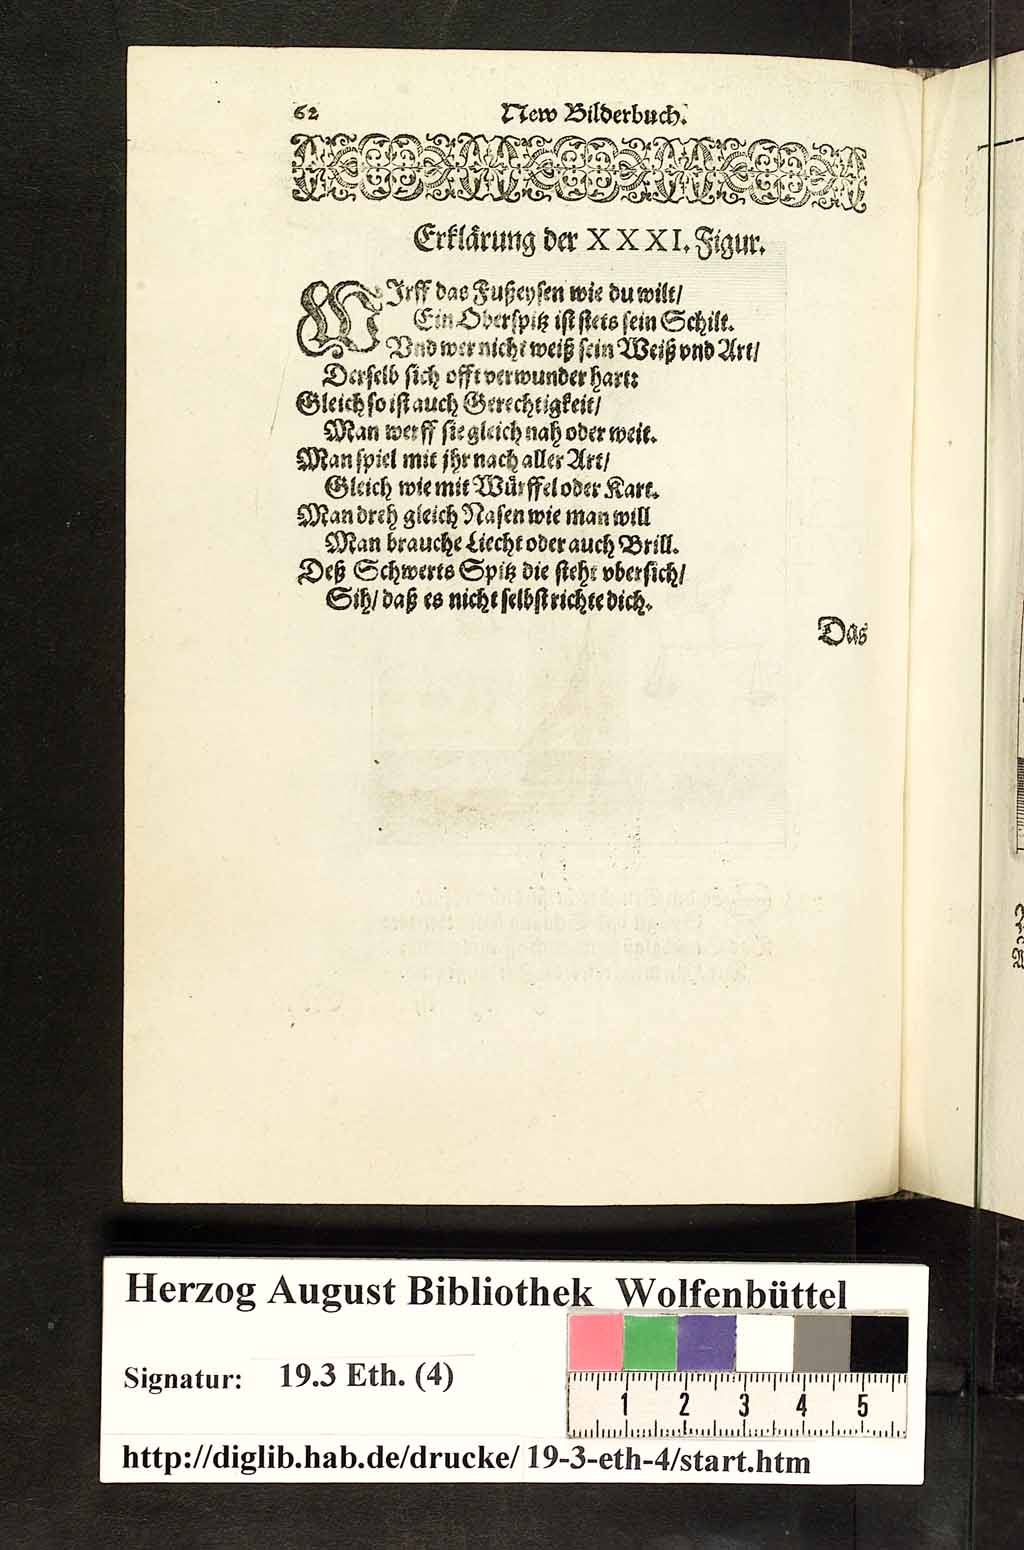 62 New Bilderbuch.
Erklärung der XXXI. Figur.
WIrff das Fußeysen wie du wilt/
Ein Oberspitz ist stets sein Schilt.
Vnd wer nicht weiß sein Weiß vnd Art/
Derselb sich offt verwunder hart:
Gleich so ist auch Gerechtigkeit/
Man werff sie gleich nah oder weit.
Man spiel mit jhr nach aller Art/
Gleich wie mit Würffel oder Kart.
Man dreh gleich Nasen wie man will
Man brauche Liecht oder auch Brill.
Deß Schwerts Spitz die steht vbersich/
Sih/ daß es nicht selbst richte dich.
Das
Herzog August Bibliothek Wolfenbüttel
Signatur: 19.3 Eth. (4)
1 2 3 4 5
http://diglib.hab.de/drucke/ 19-3-eth-4/start.htm